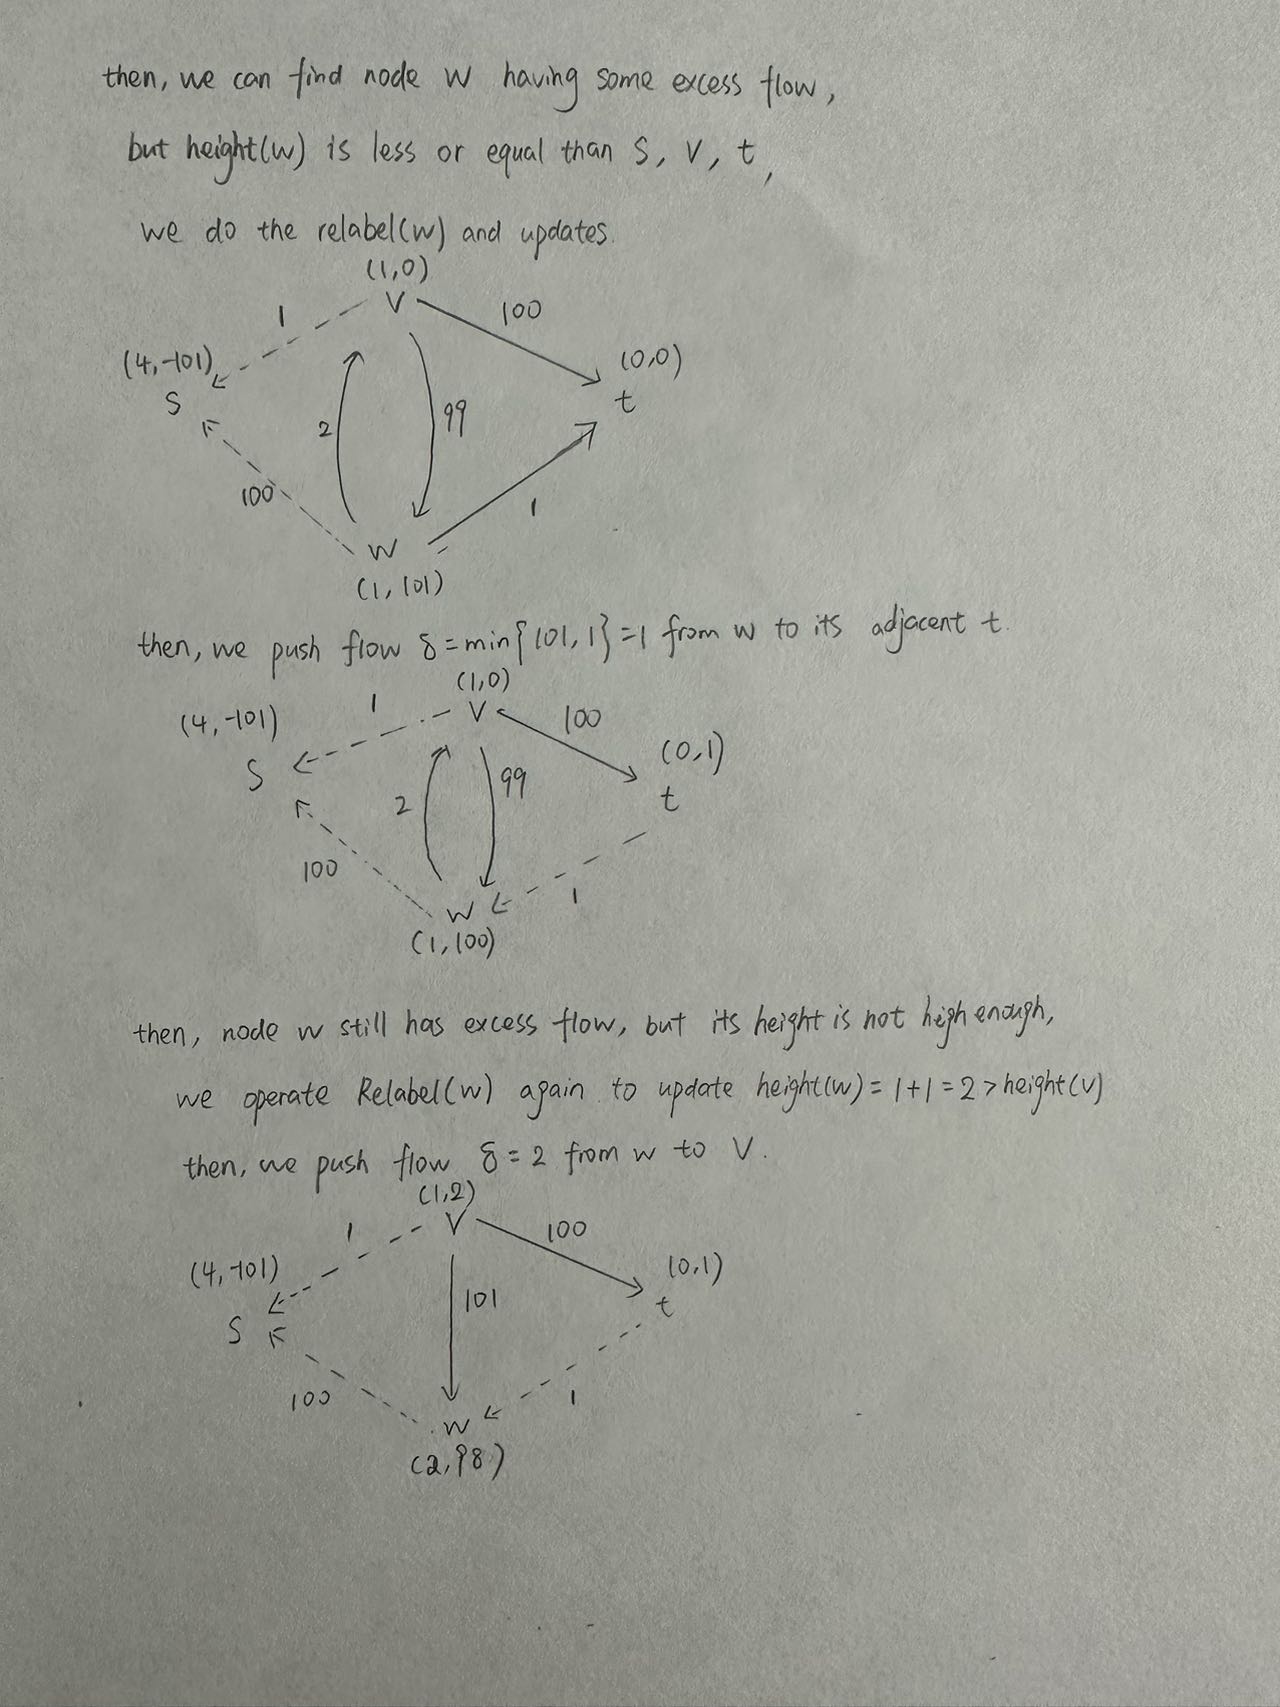 then, we can find node w having some excess flow,
but height(w) is less or equal than S, V, t,
we do the relabel(w) and updates.
(1,0)
V
1
100
(4,-101)
(0,0)
S
t
2
99
100
1
W
(1,101)
then, we push flow δ=min{101,1}=1 from w to its adjacent t.
(1,0)
1
V
100
(4,-101)
(0,1)
S
t
2
99
100
1
W
(1,100)
then, node w still has excess flow, but its height is not high enough,
we operate Relabel(w) again to update height(w)=1+1=2>height(v)
then, we push flow δ=2 from w to V.
(1,2)
1
V
100
(4,-101)
(0,1)
101
S
t
100
1
W
(2,98)